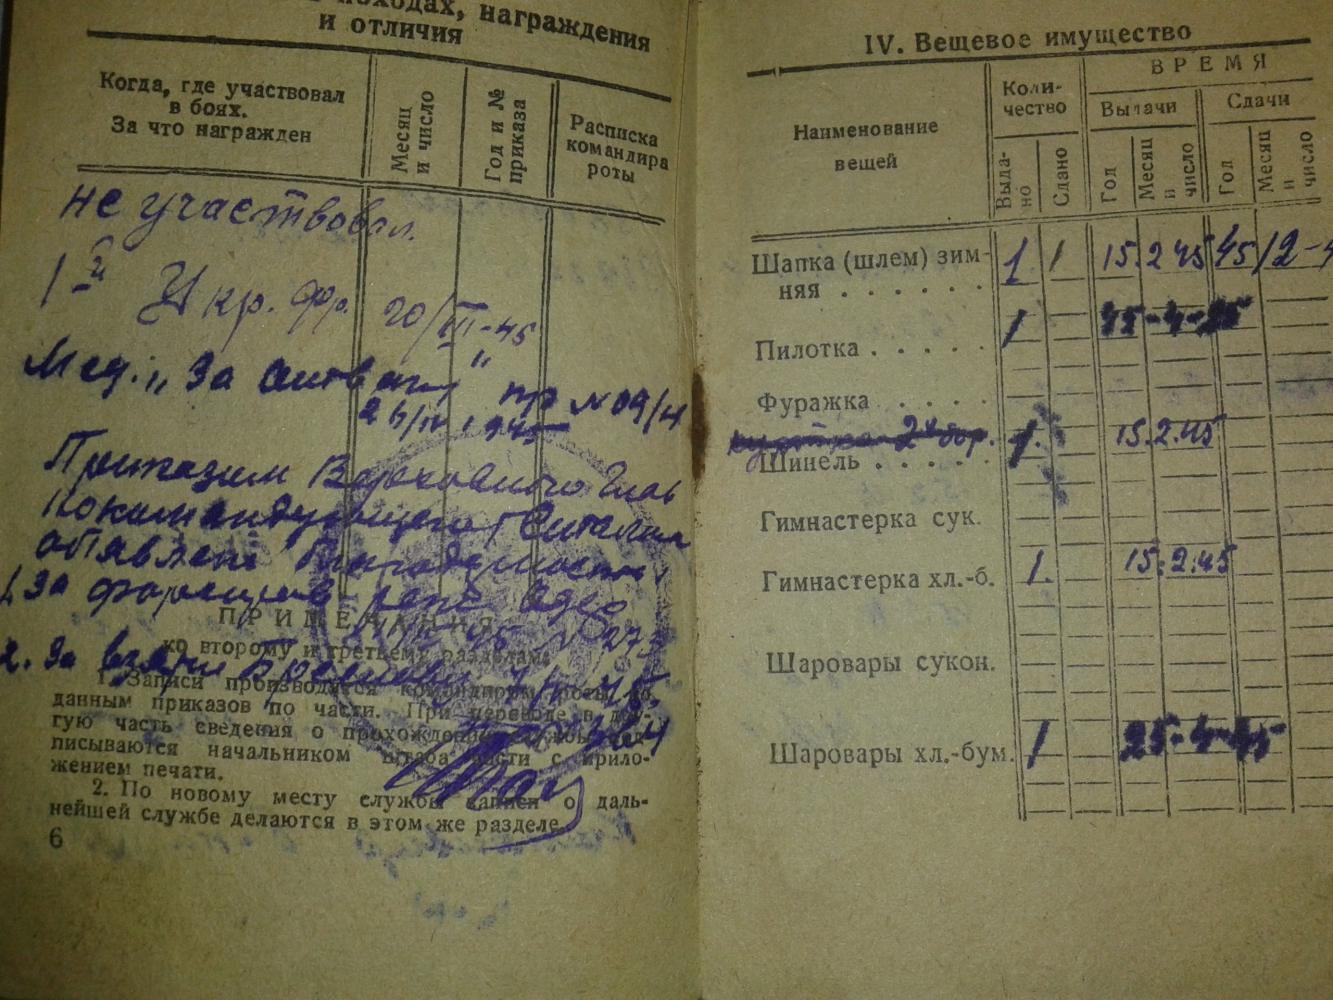 походах, награждения
и отличия
Когда, где участвовал
в боях.
За что награжден
Месяц
и число
Год и №
приказа
Расписка
командира
роты
не участвовал.
1й Укр. фр. 20/III-45
Мед. „За отвагу" пр № 09/4
26/IV 1945
Приказом Верховного Глав
нокомандующего т. Сталина
объявлено благодарность
1. За форсиров реке Одер
ПРИМЕЧАНИЯ
ко второму и третьему разделам.
2. За взятие
1. Записи производятся командиром роты по
данным приказов по части. При переводе в дру-
гую часть сведения о прохождении службы под-
писываются начальником штаба части с прило-
жением печати.
2. По новому месту службы записи о даль-
нейшей службе делаются в этом же разделе.
6
IV. Вещевое имущество
Наименование
вещей
Коли-
чество
ВРЕМЯ
Выдачи
Сдачи
Выда-
но
Сдано
Год
Месяц
и
число
Год
Месяц
и
число
Шапка (шлем) зим-
няя . . . . . . 1 1 15.2 45 45 12-4
Пилотка . . . . . 1
Фуражка . . . .
Шинель . . . . . 1. 15.2.45
Гимнастерка сук.
Гимнастерка хл.-б. 1. 15.2.45
Шаровары сукон.
Шаровары хл.-бум. 1 25-4-45